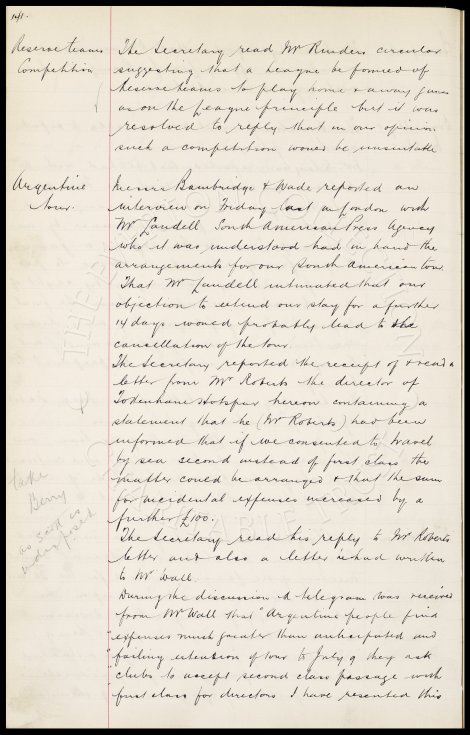 141.
Reserve teams
Competition
The Secretary read Mr Rinders circular
suggesting that a League be formed of
Reserve teams to play home & away games
as on the League principle but it was
resolved to reply that in our opinion
such a competition would be unsuitable
Argentine
tour.
Messrs Bambridge & Wade reported an
interview on Friday last in London with
Mr Landell South American Press Agency
who it was understood had in hand the
arrangements for our South American tour
That Mr Landell intimated that our
objection to extend our stay for a further
14 days would probably lead to the
cancellation of the tour.
The Secretary reported the receipt of & read a
letter from Mr Roberts the director of
Tottenham Hotspur hereon containing a
statement that he (Mr Roberts) had been
informed that if we consented to travel
by sea second instead of first class the
matter could be arranged & that the sum
for incidental expenses increased by a
further £100.
take
Berry
as said is
The Secretary read his reply to Mr Roberts
letter and also a letter he had written
to Mr Wall.
During the discussion a telegram was received
from Mr Wall that "Argentine people find
"expenses much greater than anticipated and
"failing extension of tour to July 9 they ask
"clubs to accept second class passage with
"first class for directors I have resented this